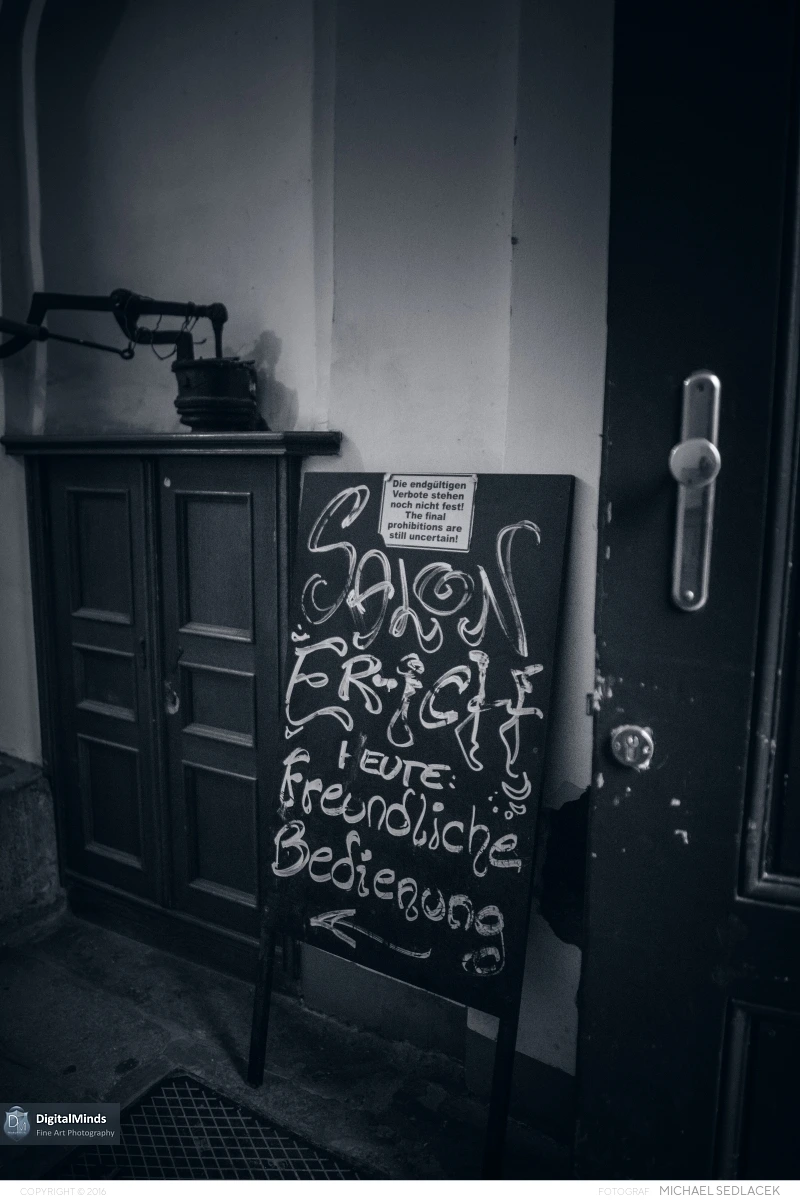 Die endgültigen
Verbote stehen
noch nicht fest!
The final
prohibitions are
still uncertain!
SALON
ERICH
HEUTE:
Freundliche
Bedienung
DM
DigitalMinds
Fine Art Photography
COPYRIGHT © 2016
FOTOGRAF MICHAEL SEDLACEK